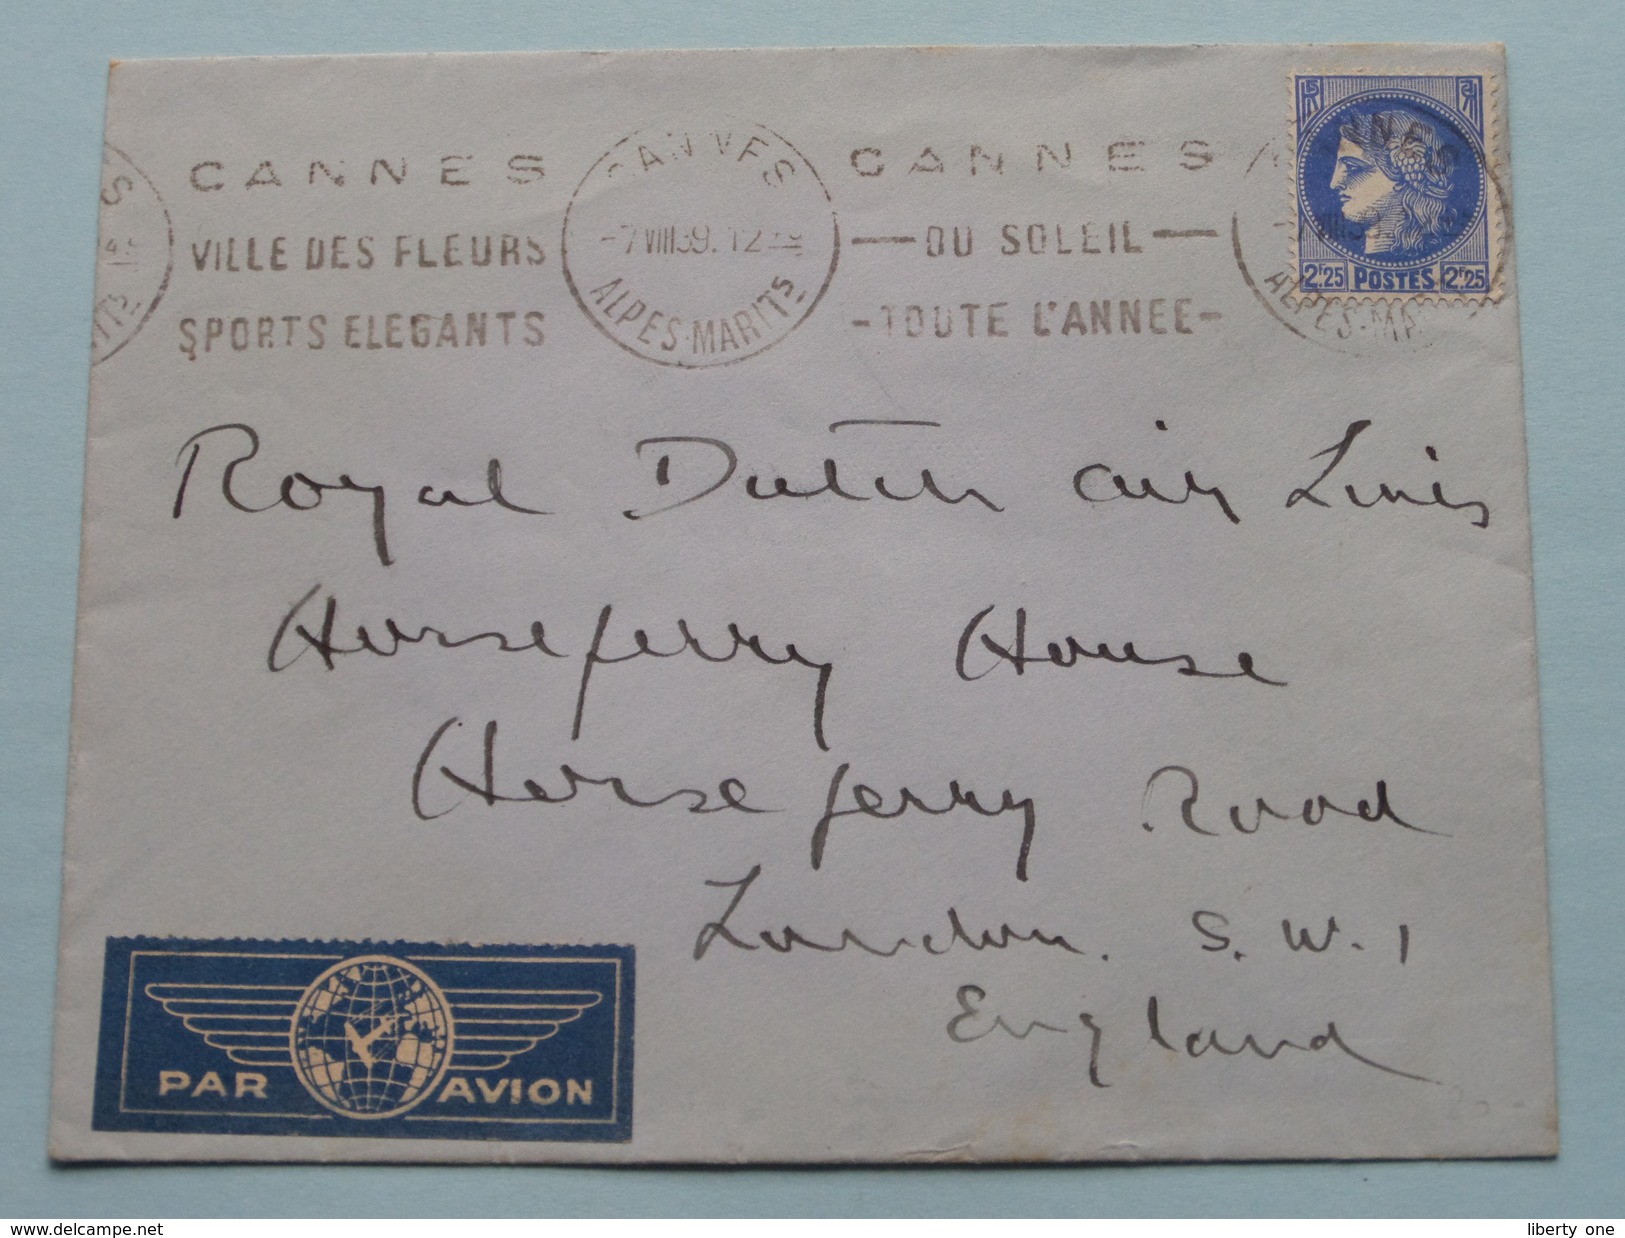 CANNES
VILLE DES FLEURS
SPORTS ELEGANTS
CANNES
-7 VIII 39. 12
ALPES-MARITS
CANNES
— DU SOLEIL —
- TOUTE L'ANNEE -
NNES
ALPES-MA
2F25 POSTES 2F25
Royal Dutch Air Lines
Horseferry House
Horseferry Road
London. S.W.1
England
PAR AVION
delcampe.net
liberty one